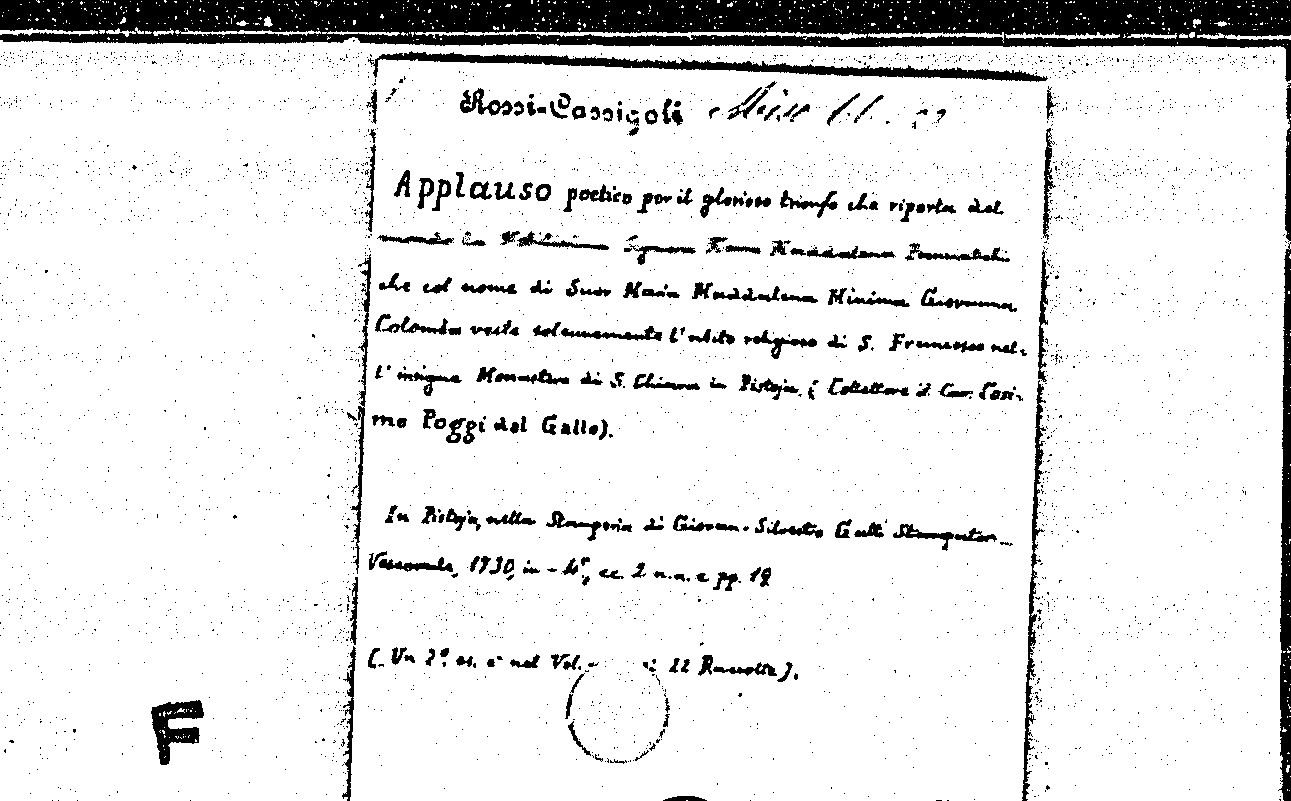 Rossi-Cassigoli Misc.
Applauso poetico per il glorioso trionfo che riporta del
mondo la Nobilissima Signora Maddalena Panciatichi
che col nome di Suor Maria Maddalena Minima Giovanna
Colomba veste solennemente l'abito religioso di S. Francesco nel-
l'insigne Monastero di S. Chiara in Pistoja. (Collettore il Cav. Cosi-
mo Poggi del Gallo).
In Pistoja, nella Stamperia di Giovan-Silvestro Gatti Stampator
1730, in-4º, cc. 2 n.n. e pp. 19
(Un 2º es. è nel Vol. 22 Raccolta).
F